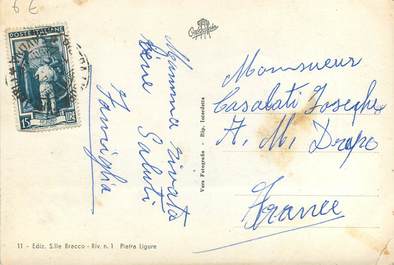 6 €
POSTE ITALIANE
15
LIRE
Saluti
Famiglia
Vera Fotografia - Rip. Interdetta
Monsieur
Casalati Joseph
A. M. Drapo
France
11 - Ediz. S.lle Bracco - Riv. n. 1 Pietra Ligure